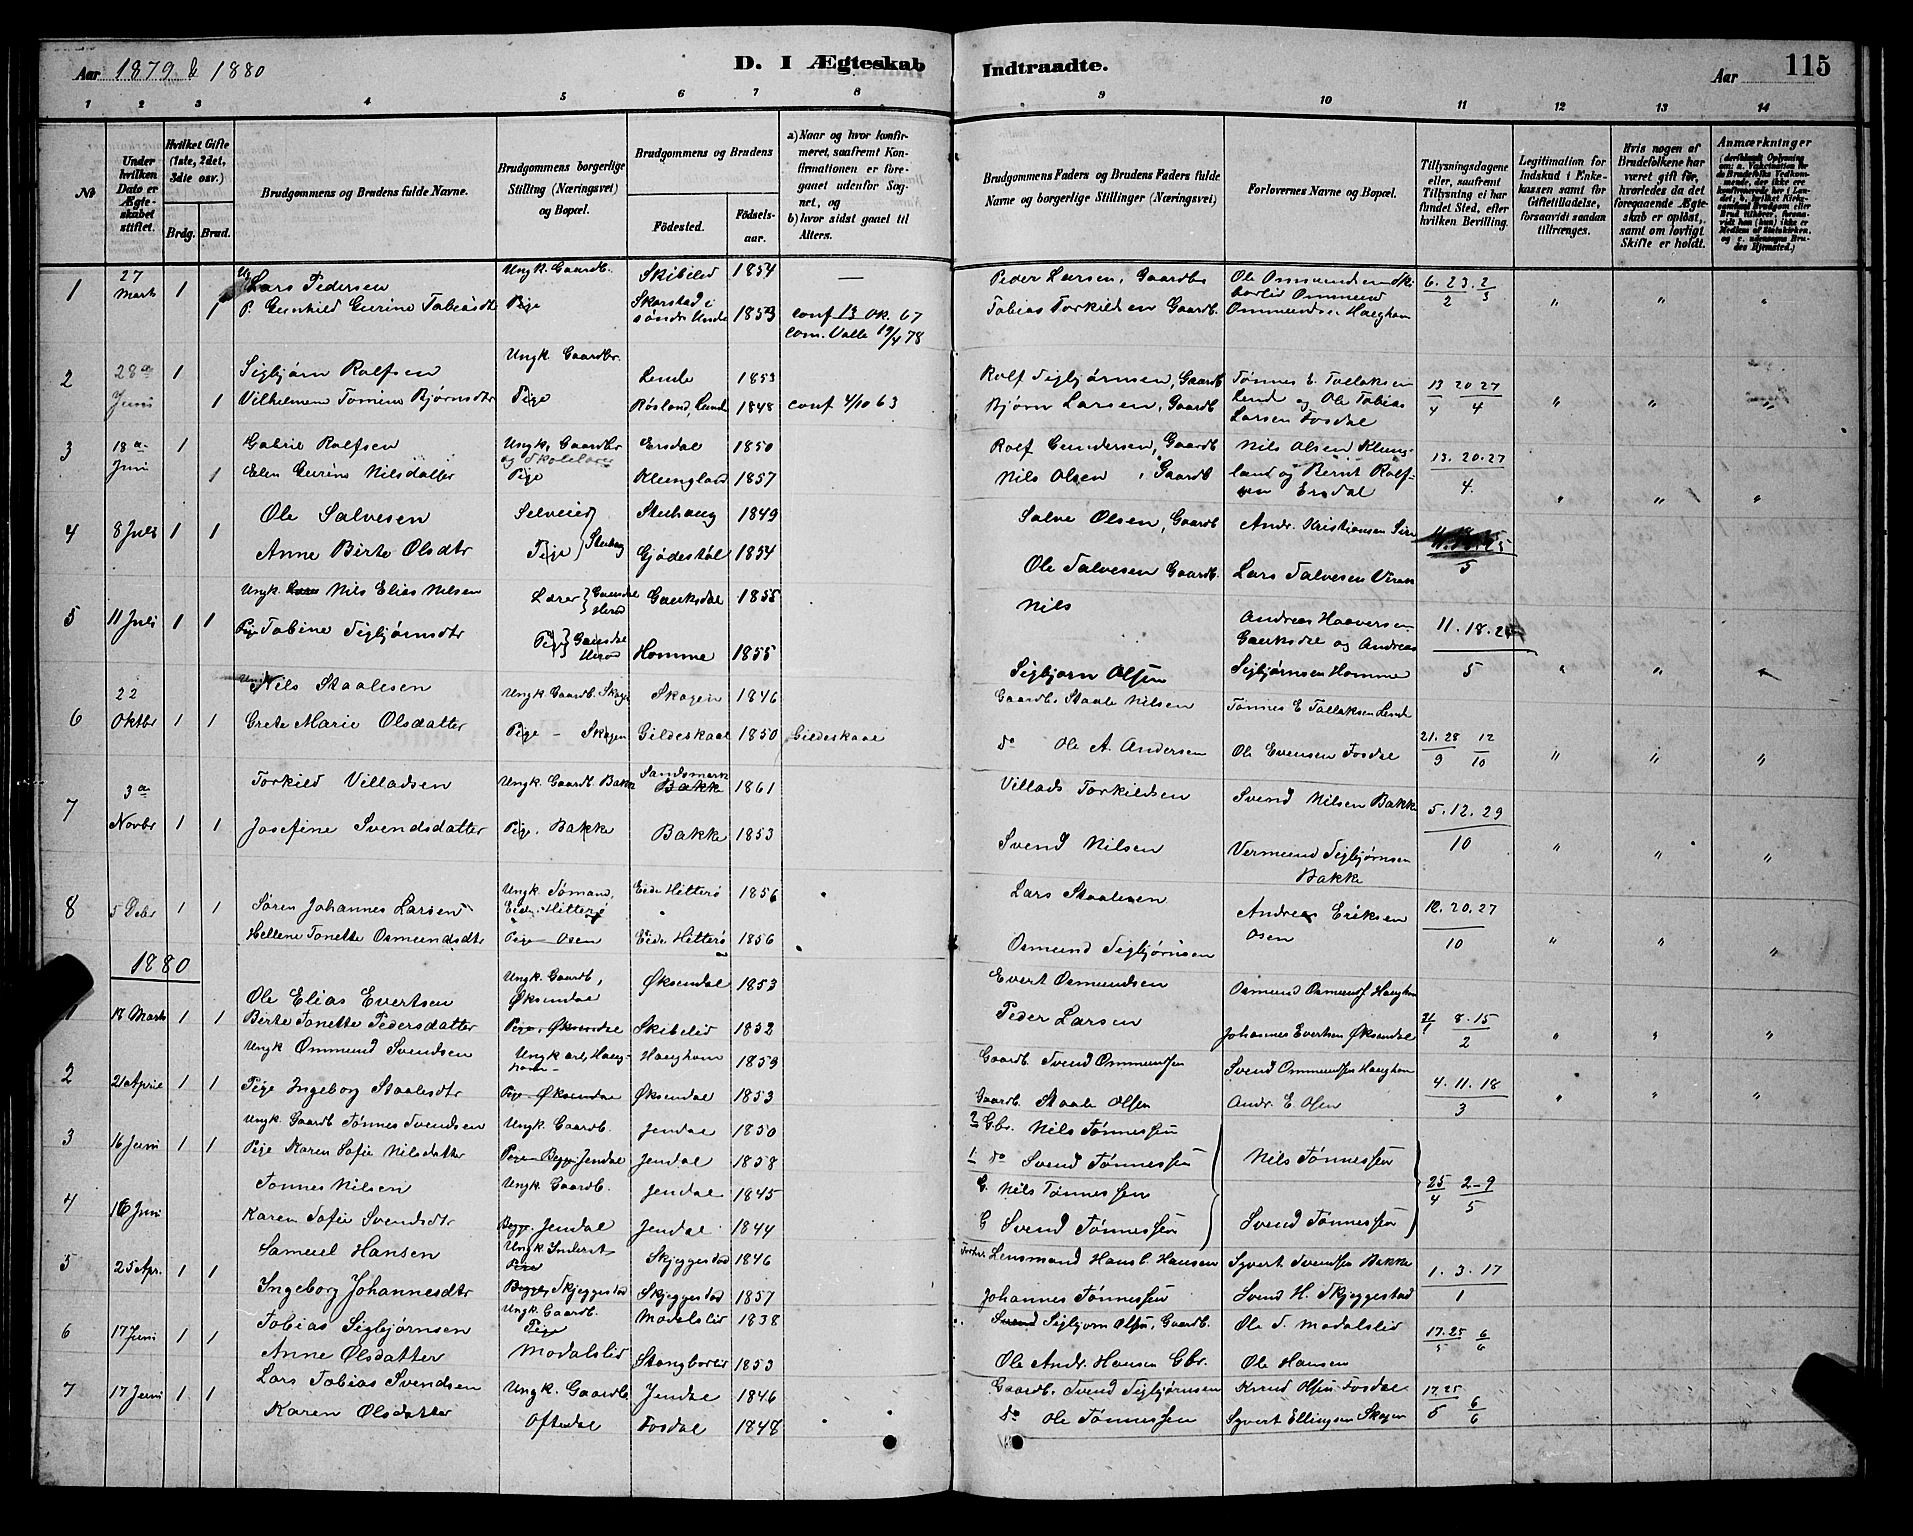 Aar 1879 & 1880
D. I Ægteskab Indtraadte.
Aar 115
1 2 3 4 5 6 7 8 9 10 11 12 13 14
No
Under hvilken Dato er Ægteskabet stiftet.
Hvilket Gifte (1ste, 2det, 3die osv.)
Brdg. Brud.
Brudgommens og Brudens fulde Navne.
Brudgommens borgerlige Stilling (Næringsvei) og Bopæl.
Brudgommens og Brudens
Fødested.
Fødselsaar.
a) Naar og hvor konfirmeret, saafremt Konfirmationen er foregaaet udenfor Sognet, og
b) hvor sidst gaaet til Alters.
Brudgommens Faders og Brudens Faders fulde Navne og borgerlige Stillinger (Næringsvei)
Forlovernes Navne og Bopæl.
Tillysningsdagene eller, saafremt Tillysning ei har fundet Sted, efter hvilken Bevilling.
Legitimation for Indskud i Enkekassen samt for Giftetilladelse, forsaavidt saadan tiltrænges.
Hvis nogen af Brudefolkene har været gift før, hvorledes da det foregaaende Ægteskab er opløst, samt om lovligt Skifte er holdt.
Anmærkninger
1 27 Marts 1 Lars Pedersen Ungk. Gaardb. Skibelid 1854 — Peder Larsen, Gaardbr Ole Ommundsen Ski 6. 23. 2/2 3
1 P. Gunhild Gurine Tobiasdtr Pige Skarstad i søndre Unde 1853 conf 13 Ok. 67 com. Valle 19/4 78 Tobias Torkildsen Gaardb. Ommund Haughom
2 28de Juni 1 Sigbjørn Rolfsen Ungk. Gaardbr. Lende 1853 Rolf Sigbjørnsen, Gaardb Tønnes E. Tollaksen 13 20 27/4 4
1 Vilhelmine Tomine Bjørnsdtr Pige Røsland, Lunde 1848 conf 4/10 63 Bjørn Larsen, Gaardb Lend og Ole Tobias Larsen Fosdal
3 18de Juni 1 Gabriel Rolfsen Ungk, Gaardbr og Skolelærer Ersdal 1850 Rolf Gundersen, Gaardb Nils Olsen Klung- 13. 20. 27/4.
1 Elen Gurine Nilsdatter Pige Klungland 1857 Nils Olsen, Gaardb land og Bernt Rolfsen Ersdal
4 8 Juli 1 1 Ole Salvesen Selveier Stuhaug 1849 Salve Olsen, Gaardb Andr. Kristiansen Sire 5
Anne Birte Olsdtr Pige Stuhaug Gjødestøl 1854 Ole Salvesen Gaardb. Lars Salvesen Viran
5 11 Juli 1 1 Ungk. Nils Elias Nilsen Lærer Gauksdal 1855 Nils Andreas Haaversen 11. 18. 25/5
Pige Tobine Sigbjørnsdtr Pige Homme 1855 Sigbjørn Olsen Gauksdal og Andreas Sigbjørnsen Homme
6 22 Oktbr 1 1 Nils Staalesen Ungk Gaardb. Skoge Skogen 1846 Gaardb. Staale Nilsen Tønnes E Tollaksen Lende 21. 28/9 12/10
Grete Marie Olsdatter Pige – Skogen Gildeskaal 1850 Gildeskaal do Ole A. Andersen Ole Evensen Fosdal
7 3de Novbr 1 1 Torkild Villadsen Ungk Gaardb Bakk Sandsmark Bakke 1861 Villads Torkildsen Svend Nilsen Bakke 5. 12. 29/10
Josefine Svendsdatter Pige. Bakke Bakke 1853 Svend Nilsen Vermund Sigbjørnsen Bakke
8 5 Debr 1 1 Søren Johannes Larsen Ungk. Sømand, Eide. Hitterø Eide Hitterø 1856 Lars Staalesen Andreas Eriksen Osen 12. 20. 27/10
Hellene Tonette Osmundsdtr Pige – Osen Eide. Hitterø 1856 Osmund Sigbjørnsen
1880
1 18 Marts 1 1 Ole Elias Evertsen Ungk. Gaardb, Øksendal Øksendal 1853 Evert Osmundsen Osmund Osmunds Haughom 21/1 8. 15/2
Berte Tonette Pedersdatter Pige, Øksendal Skibelid 1852 Peder Larsen Johannes Evertsen Øksendal
2 21 April 1 1 Ungk Ommund Svendsen Ungkarl, Haughom Haughom 1853 Gaardb. Svend Ommundsen Svend Ommundsen Haughom 4. 11. 18/3
Pige Ingeborg Staalesdtr Pige Øksendal Øksendal 1853 Gaardb. Staale Olsen Andr. E. Osen
3 16 Juni 1 1 Ungk. Gaardb Tønnes Svendsen Ungk. Gaardb. Jendal 1850 2 Gbr. Nils Tønnessen Nils Tønnessen 25/4 2-9/5
Pige Karen Sofie Nilsdatter Pige Jendal Jendal 1858 1 do Svend Tønnessen
4 16 Juni Tønnes Nilsen Ungk. Gaardb. Jendal 1845 G. Nils Tønnessen
Karen Sofie Svendsdtr Jendal Jendal 1844 G Svend Tønnessen Svend Tønnessen
5 25 Apr. 1 1 Samuel Hansen Ungk. Inderst Skjeggestad 1846 Lensmand Hans C. Hansen Syvert Svendsen Bakke 1. 3. 17/1
Ingeborg Johannesdtr Pige Skjeggestad Skjeggestad 1857 Johannes Tønnessen Svend H. Skjeggestad
6 17 Juni 1 1 Tobias Sigbjørnsen Ungk. Gaardb. Modalslid 1838 Sigbjørn Olsen, Gaardb. Ole S. Modalslid 17. 25/5 6/6
Anne Olsdatter Pige Modalslid Stangborlid 1853 Ole Andr. Hansen Gbr. Ole Hansen
7 17 Juni 1 1 Lars Tobias Svendsen Ungk. Gaardb Jendal 1846 Gaardb. Svend Sigbjørnsen Knud Olsen Fosdal 17. 25/5 6/6
Karen Olsdatter Oftedal Fosdal 1848 do Ole Tønnessen Syvert Ellingsen Skogen